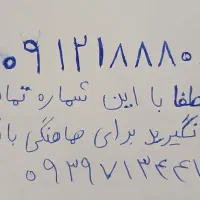 ۰۹۱۲۱۸۸۸۰
طفا با این شماره تما
نگیرید برای هماهنگی با
۰۹۳۹۷۱۳۴۴۱